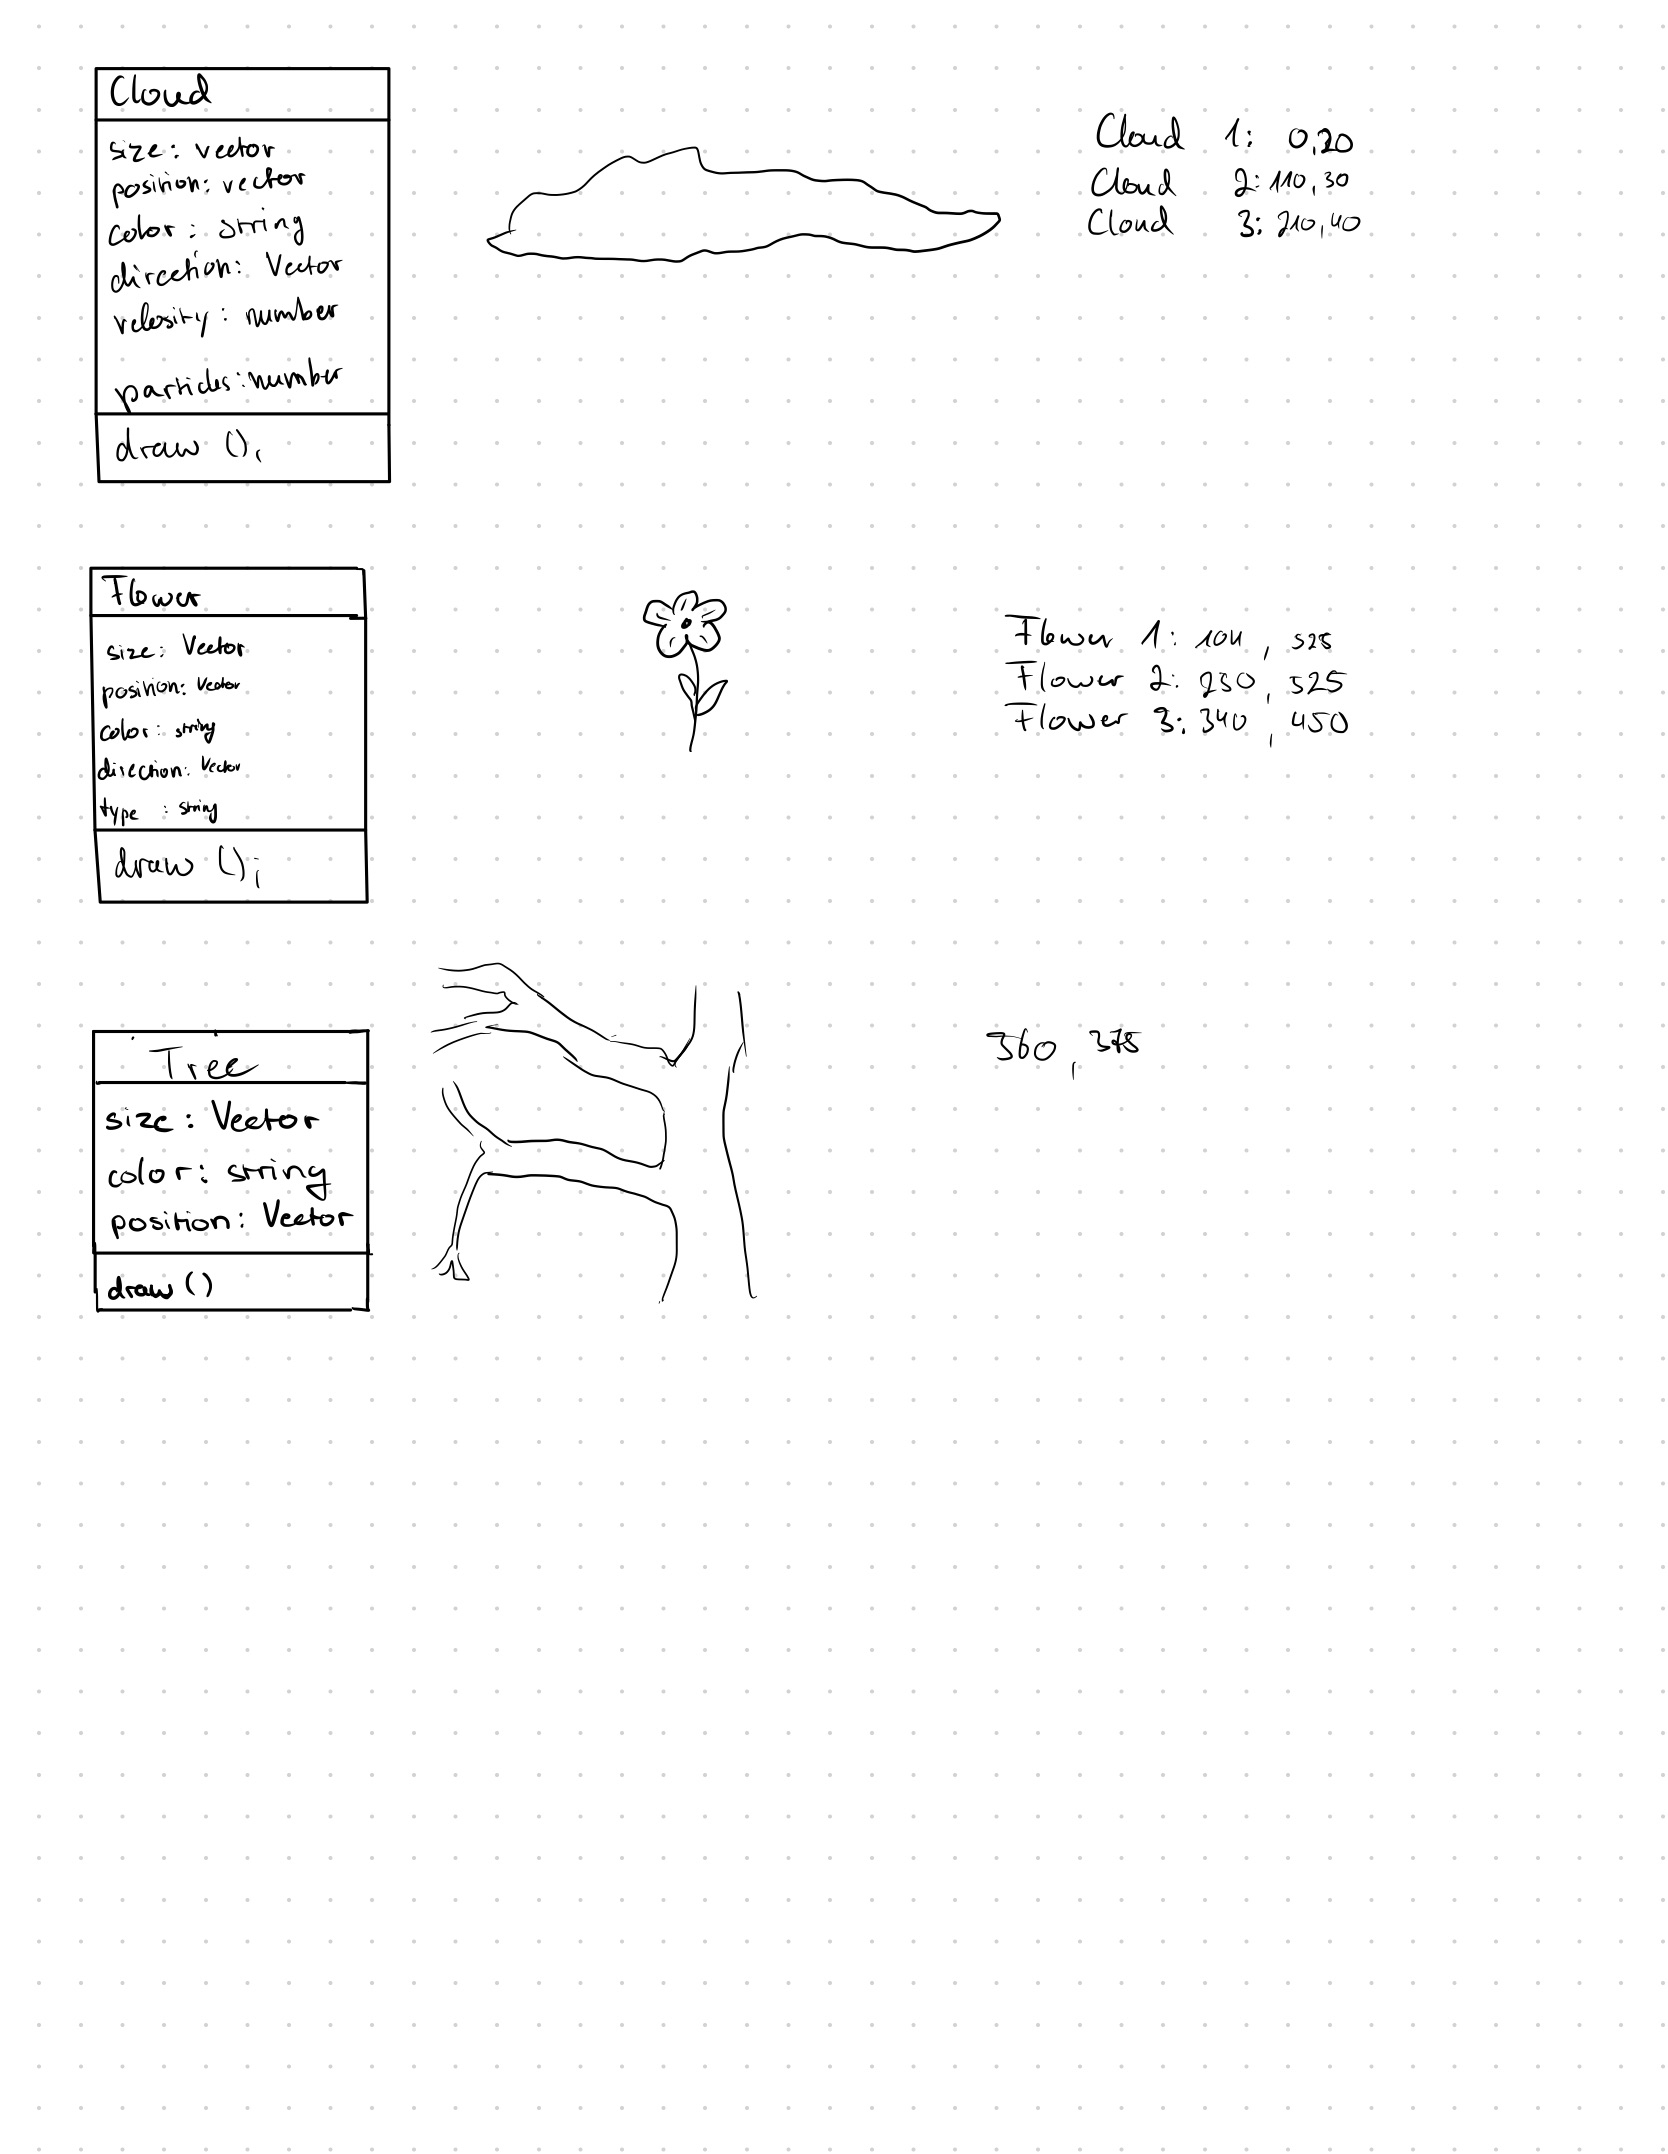 Cloud
size: vector
position: vector
color: string
direction: Vector
velosity: number
particles: number
draw ();
Cloud 1: 0,20
Cloud 2: 110,30
Cloud 3: 210,40
Flower
size: Vector
position: Vector
color: string
direction: Vector
type : string
draw ();
Flower 1: 104, 525
Flower 2: 230, 525
Flower 3: 340, 450
Tree
size: Vector
color: string
position: Vector
draw ()
360, 375